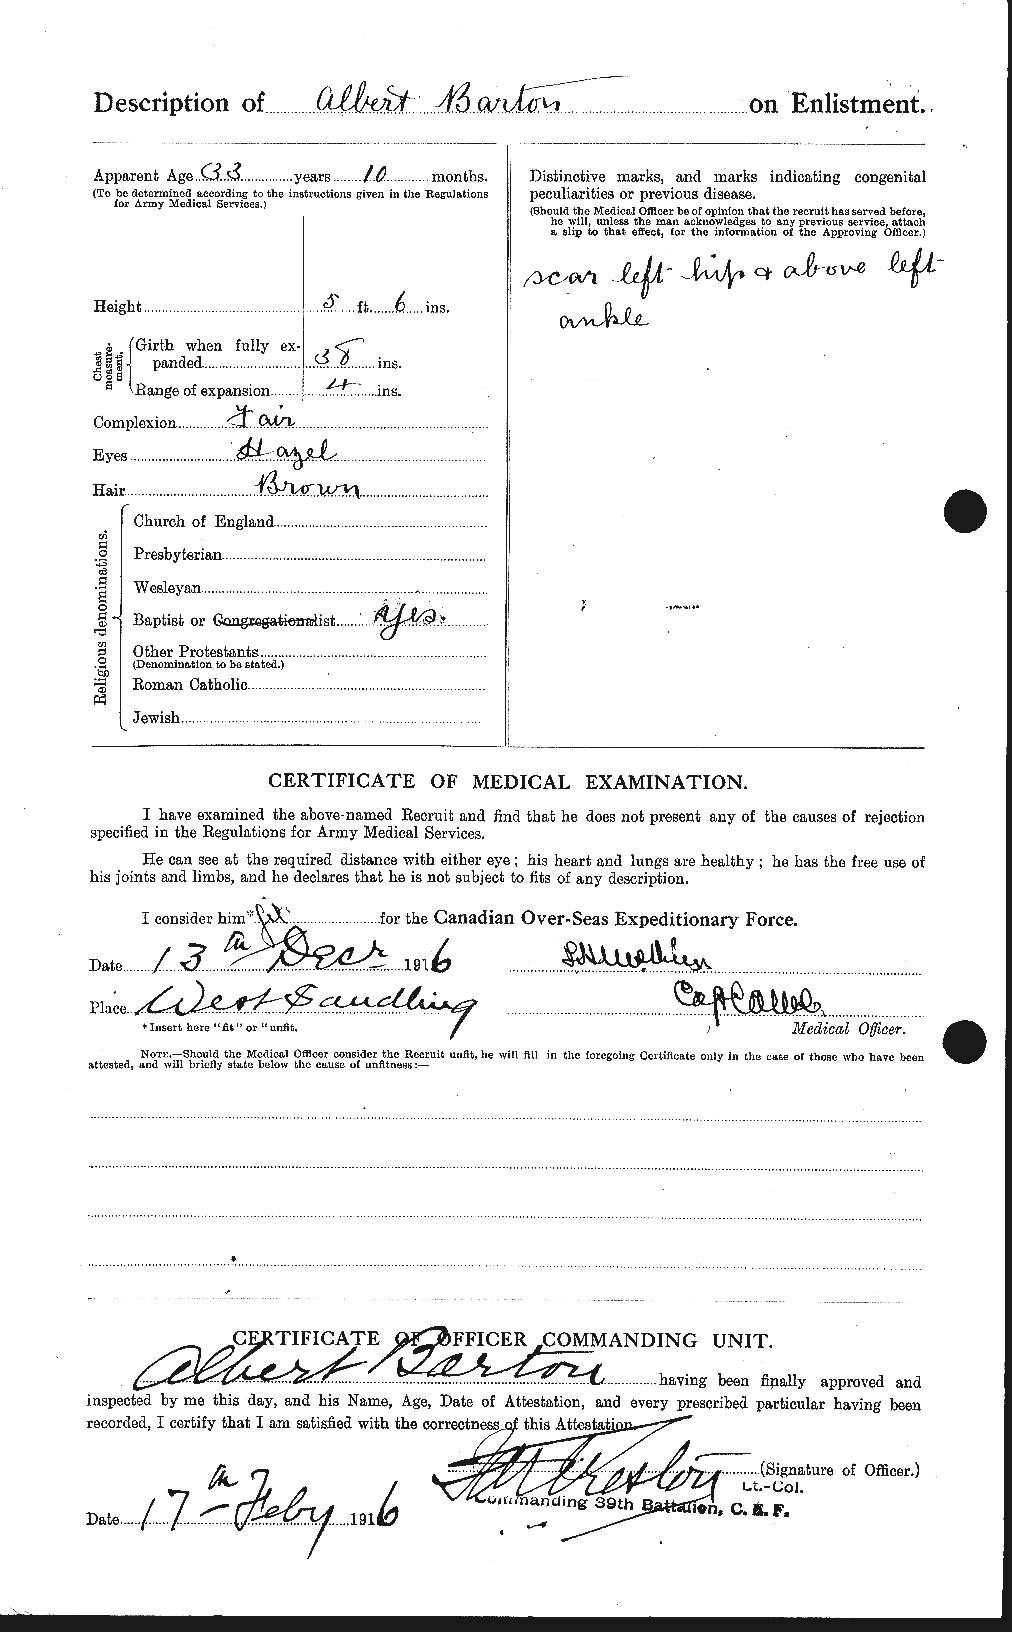 Description of Albert Barton on Enlistment.
Apparent Age 33 years 10 months.
(To be determined according to the instructions given in the Regulations
for Army Medical Services.)
Height 5 ft. 6 ins.
Chest measure-ment.
Girth when fully ex-
panded 38 ins.
Range of expansion 4 ins.
Complexion Fair
Eyes Hazel
Hair Brown
Religious denominations.
Church of England
Presbyterian
Wesleyan
Baptist or Congregationalist yes.
Other Protestants
(Denomination to be stated.)
Roman Catholic
Jewish
Distinctive marks, and marks indicating congenital
peculiarities or previous disease.
(Should the Medical Officer be of opinion that the recruit has served before,
he will, unless the man acknowledges to any previous service, attach
a slip to that effect, for the information of the Approving Officer.)
scar left hip & above left
ankle
CERTIFICATE OF MEDICAL EXAMINATION.
I have examined the above-named Recruit and find that he does not present any of the causes of rejection
specified in the Regulations for Army Medical Services.
He can see at the required distance with either eye; his heart and lungs are healthy; he has the free use of
his joints and limbs, and he declares that he is not subject to fits of any description.
I consider him* fit for the Canadian Over-Seas Expeditionary Force.
Date 13th Decr 1916
Place West Sandling
Capt
*Insert here "fit" or "unfit.
Medical Officer.
NOTE.—Should the Medical Officer consider the Recruit unfit, he will fill in the foregoing Certificate only in the case of those who have been
attested, and will briefly state below the cause of unfitness:—
CERTIFICATE OF OFFICER COMMANDING UNIT.
Albert Barton having been finally approved and
inspected by me this day, and his Name, Age, Date of Attestation, and every prescribed particular having been
recorded, I certify that I am satisfied with the correctness of this Attestation.
Preston (Signature of Officer.)
Lt.-Col.
Commanding 39th Battalion, C. E. F.
Date 17th Feby 1916